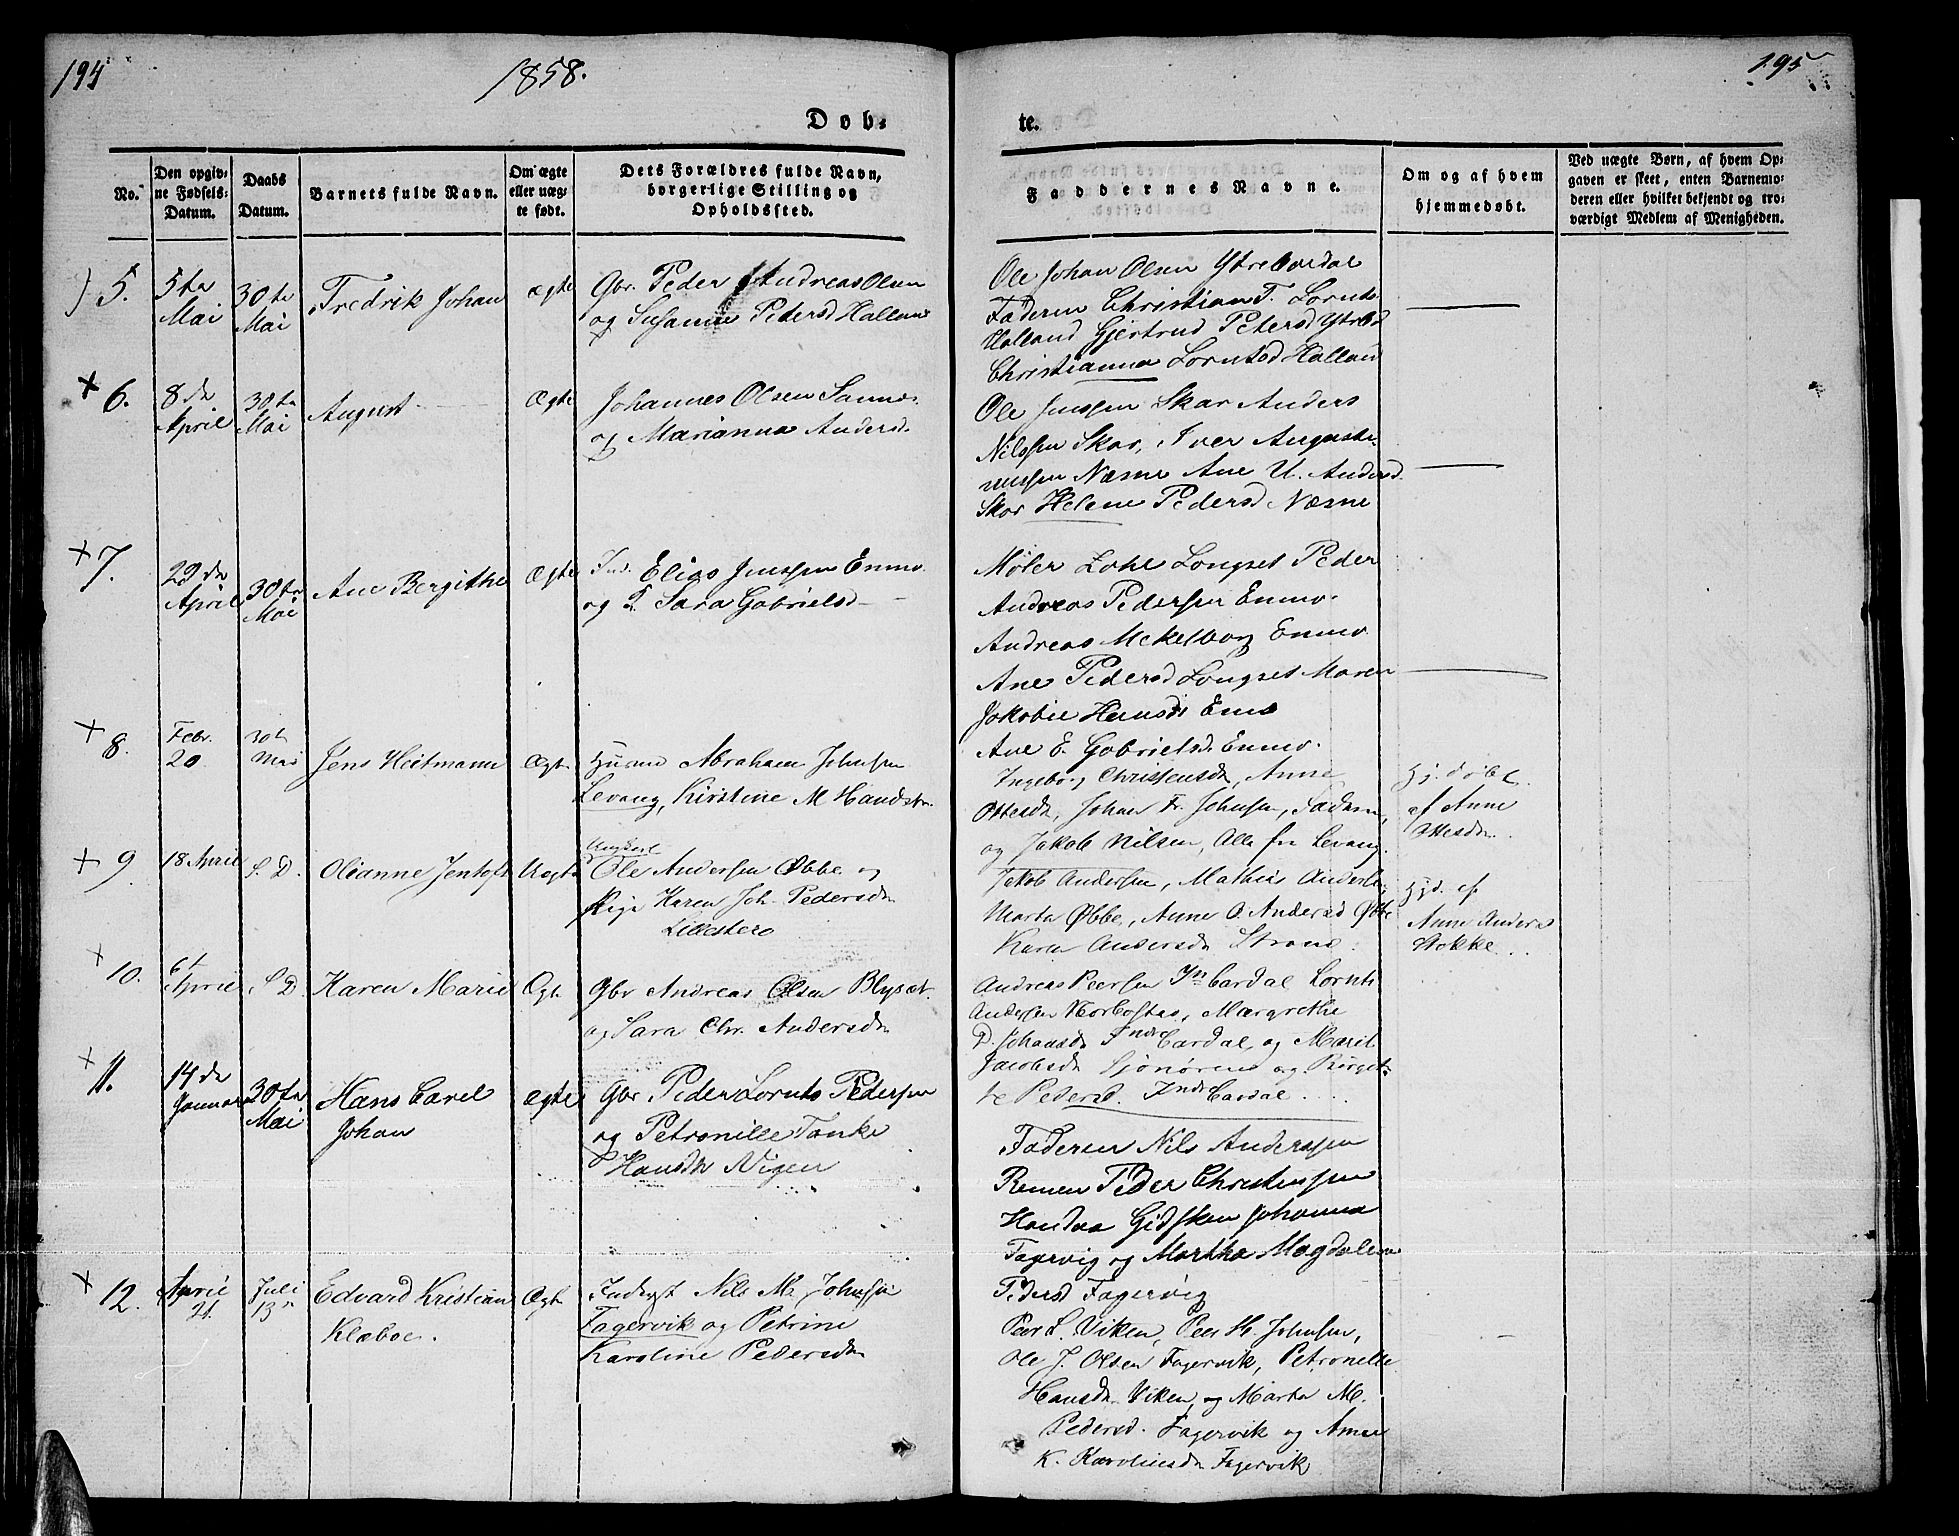 194
1858.
195
Døb-
te.
No.
Den opgiv-
ne Fødsels-
Datum.
Daabs
Datum.
Barnets fulde Navn.
Om ægte
eller uæg-
te født.
Dets Forældres fulde Navn,
borgerlige Stilling og
Opholdssted.
Faddernes Navne.
Om og af hvem
hjemmedøbt.
Ved uægte Børn, af hvem Op-
gaven er skeet, enten Barnemo-
deren eller hvilket bekjendt og tro-
værdigt Medlem af Menigheden.
5.
5te
Mai
30te
Mai
Fredrik Johan
ægte
Gbr. Peder Andreas Olsen
og Susanne Petersd
Ole Johan Olsen
Faderen Christian T. Lornts
Gjertrud Petersd
Christianna Lorntsd
6.
8de
April
30te
Mai
August
Ægte
Johannes Olsen
og Marianna Andersd.
Ole Jenssen Skar Anders
Nilssen Skar, Iver Augusti-
nussen Næsne Ane U. Andersd
Skar Helene Pedersd Næsne
7.
29de
April
30te
Mai
Ane Bergithe
Ægte
Ind. Elias Jenssen Enmo.
og Q. Sara Gabrielsd
Longset Peder
Andreas Pedersen Enmo.
Andreas Mekelborg Enmo
Ane Pedersd Longset Maren
Jakobie Hansd Enmo
Ane E. Gabrielsd. Enmo.
8.
Febr.
20
30te
Mai
Jens Heitmann
Ægt.
Husmd Abraham Johnsen
Levang, Kirstine M
Ingeborg Christensdr, Anne
Ottesdr, Johan Fr. Johnsen, Faderen,
og Jakob Nilsen, Alle fra Levang.
Hj. døbt
af Anne
Ottesdr.
9.
18 April
S. D.
Olianne Jentoft
Uægte
Ungkarl
Ole Andersen Øbbe og
Pige Karen Joh. Pedersdr
Lillestero
Jakob Andersen, Mathias
Marta Øbbe, Anne O. Andersd Øbbe
Andersdr Strand.
Hjd. af
Anne Andersd
Stokke
10.
6t
April
S D.
Karen Marie
Ægt.
Gbr Andreas Olsen
og Sara Chr. Andersdr
Andreas Peersen Lornts
Andersen Margrethe
D. Johansdr Indre og Marit
Jacobsdr Sjonøren og Birgit-
te Pedersd. Indre
11.
14de
Januar
30te
Mai
Hans Carel
Johan
Ægte
Gbr Peder Lornts Pedersen
og Petronille Tanke
Hansdr Vigen
Faderen Nils Anderssen
Remen Peder Christenssen
Gidsken Johanna
Fagervig og Martha Magdalena
Pedersd Fagervig
12.
April
21.
Juli
13
Edvard Kristian
Klæboe.
Ægt.
Inderst Nils M. Johnsen
Fagervik og Petrine
Karoline Pedersdr
Peer L. Viken, Peer H. Johnsen,
Ole J. Olsen Fagervik, Petronelle
Hansdr Viken, og Marta M.
Pedersd. Fagervik og Anne
K. Karoliusdr Fagervik